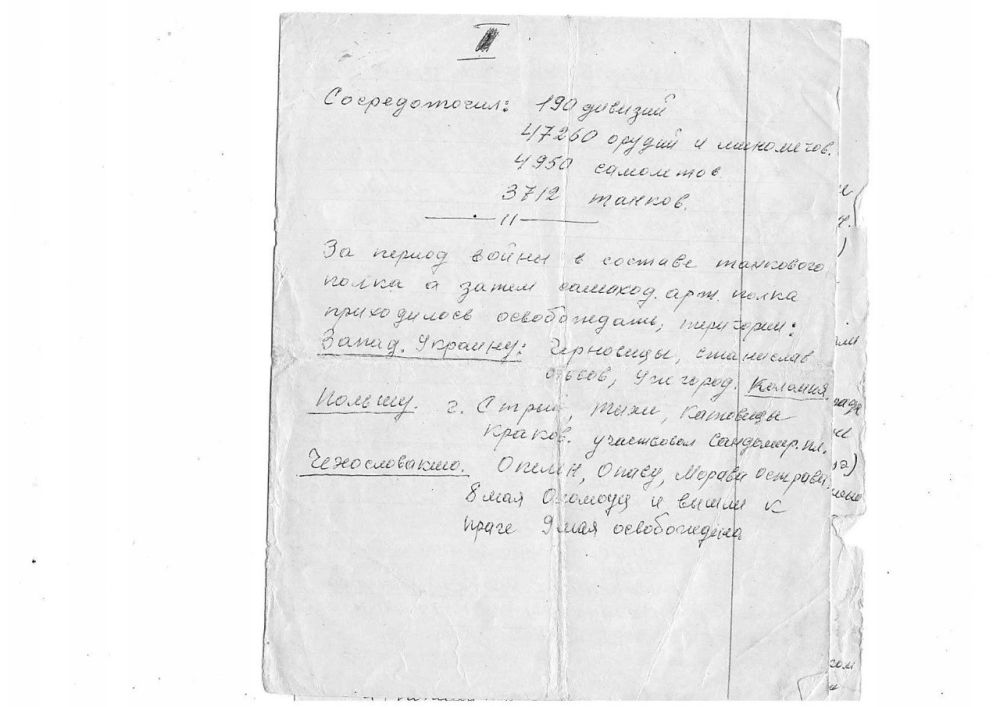 II
Сосредоточил: 190 дивизий
47260 орудий и минометов.
4950 самолетов
3712 танков.
— 11 —
За период войны в составе танкового
полка а затем самоход. арт. полка
приходилось освобождать, територии:
Запад. Украину: Черновицы, Станислав
Львов, Ужгород. Коломия.
Польшу. г. Стрый, Тихи, Катовицы
Краков. участвовал Сандомир. пл.
Чехословакию. Опельн, Опаву, Морава Острава,
8 мая Оломоуц и вышли к
Праге 9 мая освобождена